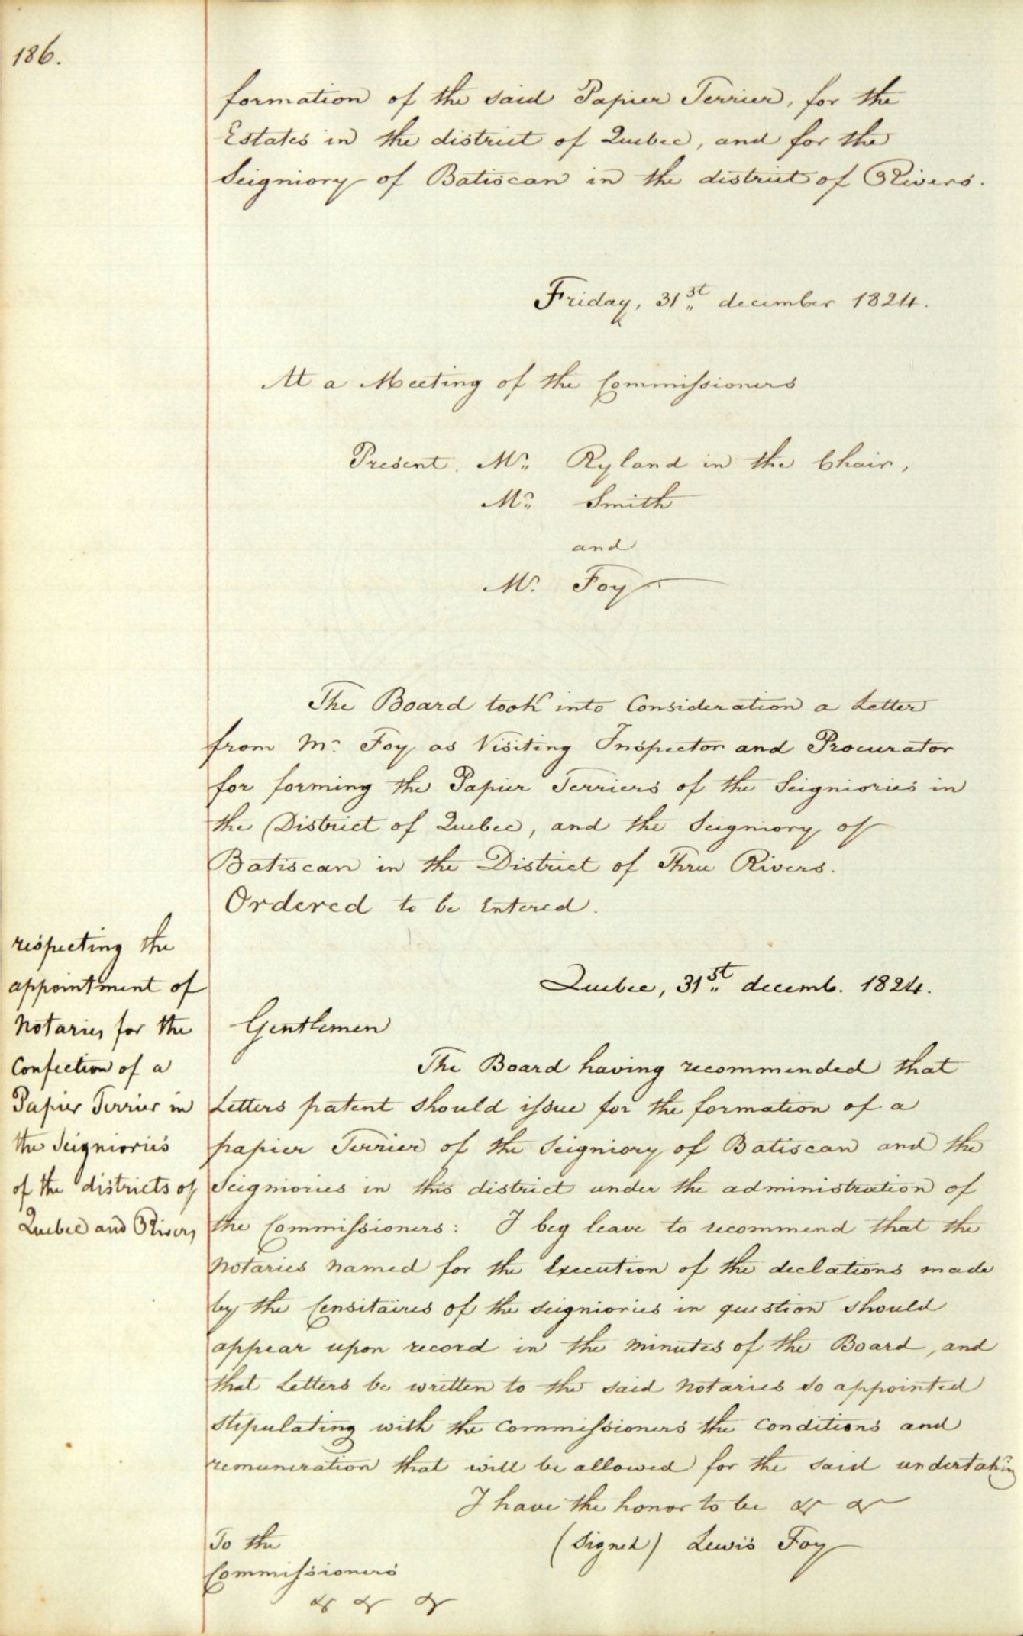 186.
formation of the said Papier Terrier, for the
Estates in the district of Quebec, and for the
Seigniory of Batiscan in the district of 3 Rivers.
Friday, 31st december 1824.
At a Meeting of the Commissioners
Present. Mr. Ryland in the Chair,
Mr. Smith
and
Mr. Foy
The Board took into Consideration a Letter
from Mr. Foy as Visiting Inspector and Procurator
for forming the Papier Terriers of the Seigniories in
the District of Quebec, and the Seigniory of
Batiscan in the District of Three Rivers.
Ordered to be Entered.
respecting the
appointment of
Notaries for the
Confection of a
Papier Terrier in
the Seigniories
of the districts of
Quebec and 3 Rivers
Quebec, 31st decemb. 1824.
Gentlemen
The Board having recommended that
Letters patent should issue for the formation of a
papier Terrier of the Seigniory of Batiscan and the
Seigniories in this district under the administration of
the Commissioners: I beg leave to recommend that the
Notaries named for the Execution of the declations made
by the Censitaires of the seigniories in question should
appear upon record in the minutes of the Board, and
that Letters be written to the said Notaries so appointed
stipulating with the Commissioners the Conditions and
remuneration that will be allowed for the said undertaking
I have the honor to be & &
(signed) Lewis Foy
To the
Commissioners
& & &